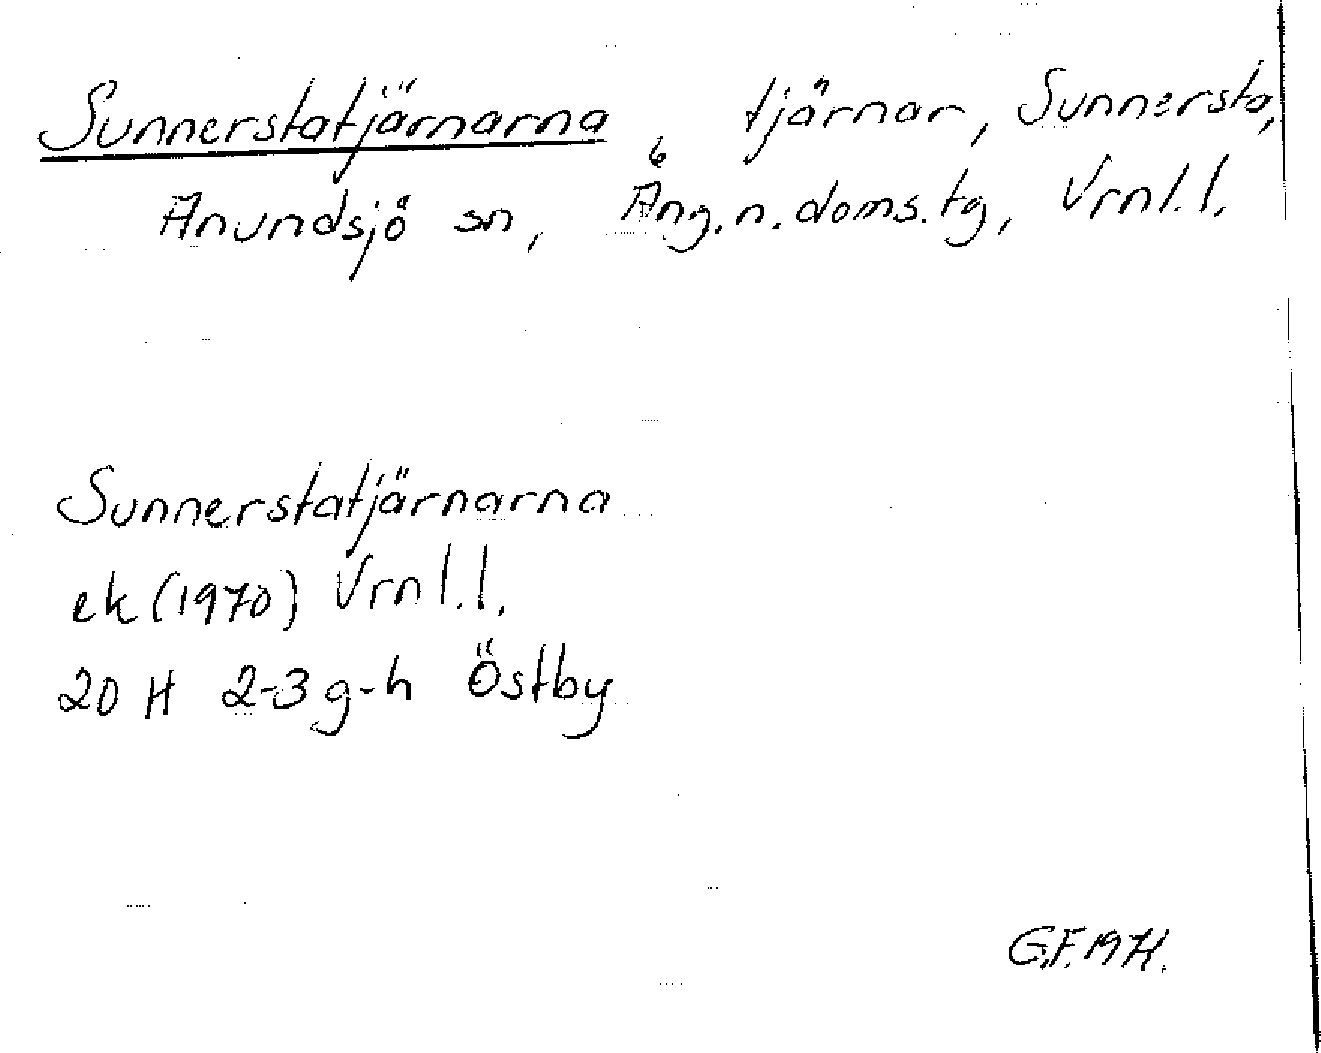 Sunnerstatjärnarna, tjärnar, Sunnersta,
Anundsjö sn, Ång.n.doms.tg, Vrnl.l.
Sunnerstatjärnarna
ek (1970) Vrnl.l.
20 H 2-3 g-h Östby
G.F. 1971.